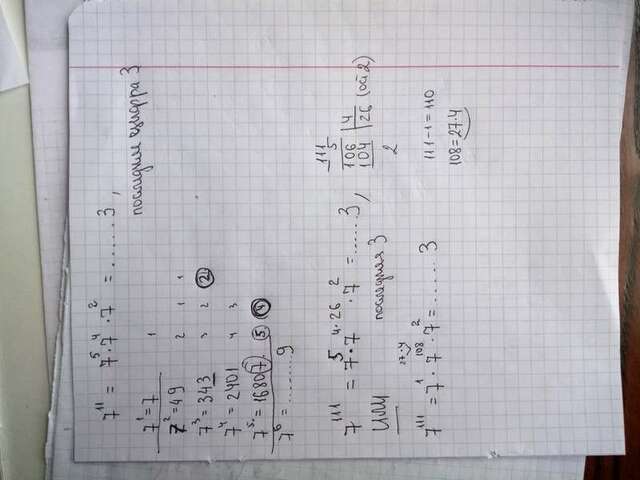 7¹¹ = 7⁵·7⁴·7² = ........3,
последним цифра 3
7¹=7 1
7²=49 2 1 1
7³=343 3 2 2
7⁴=2401 4 3
7⁵=16807 5 4
7⁶=.........9
7¹¹¹ = 7⁵·7⁴·²⁶·7² =......3,
последняя 3
111
5
106 4
104 26 (ост 2)
2
или
27·4
7¹¹¹=7¹·7¹⁰⁸·7²=...... 3
111-1=110
108=27·4